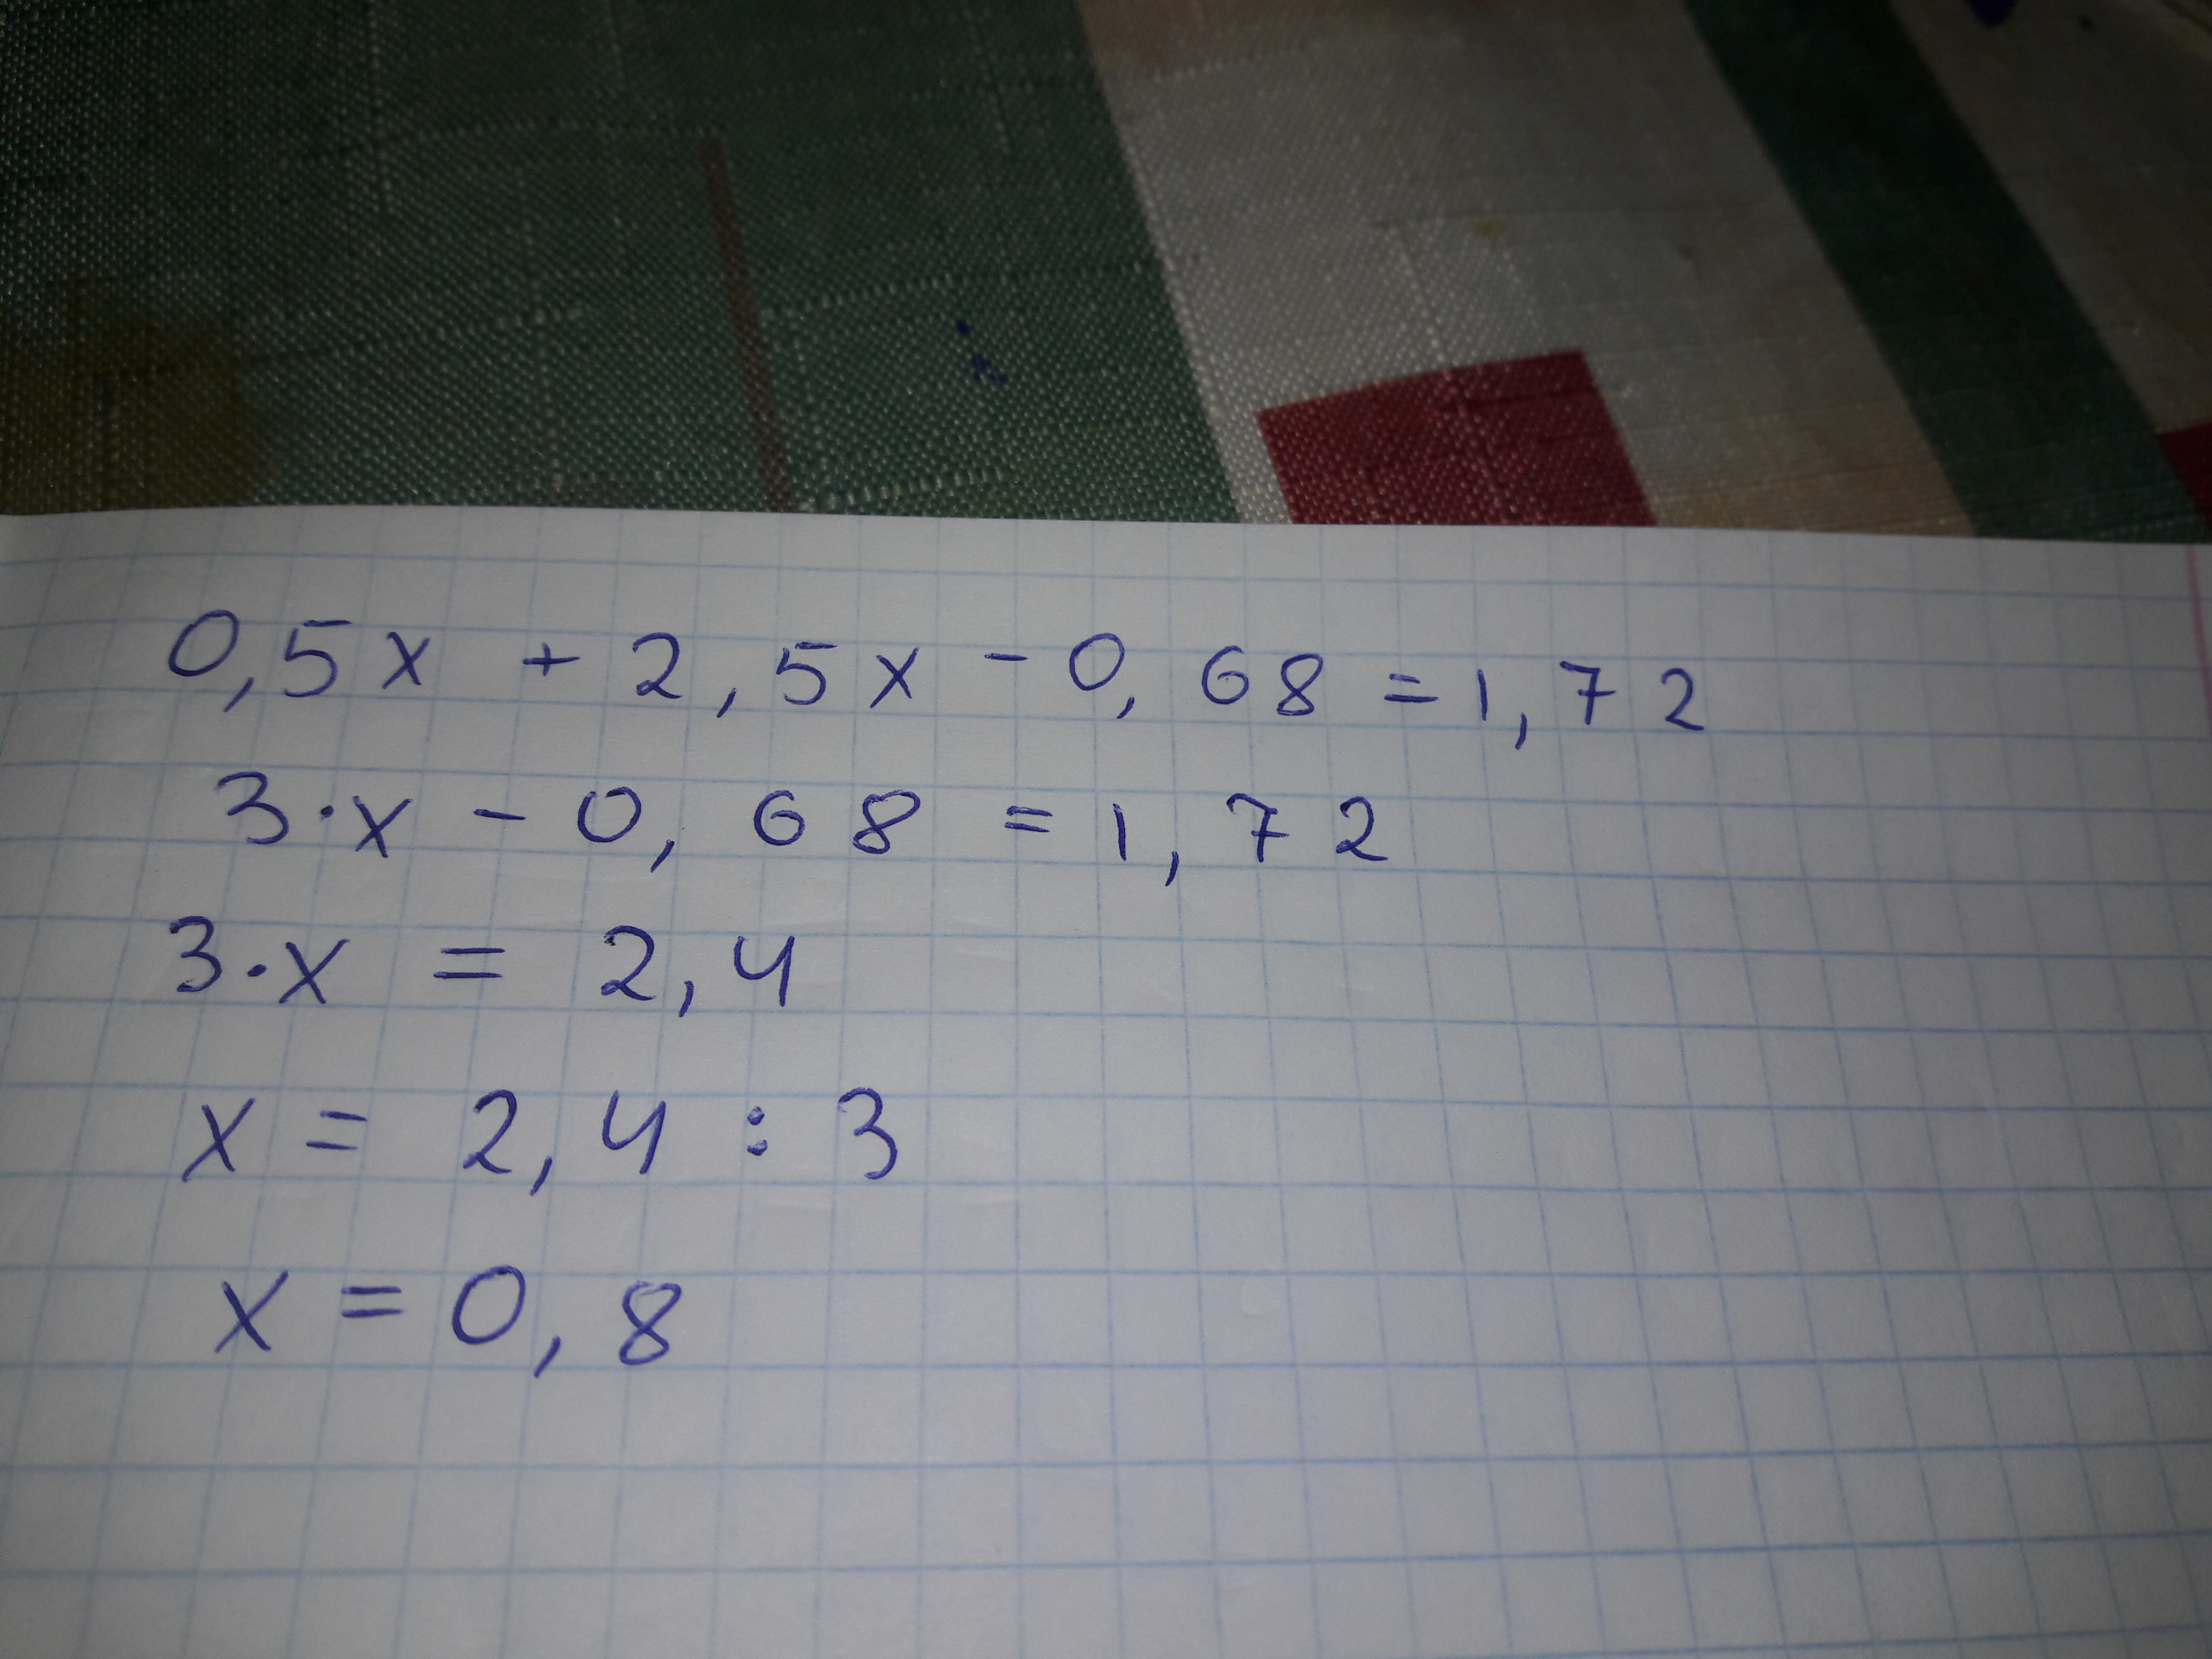 0,5x + 2,5x - 0,68 = 1,72
3·x - 0,68 = 1,72
3·x = 2,4
x = 2,4 : 3
x = 0,8